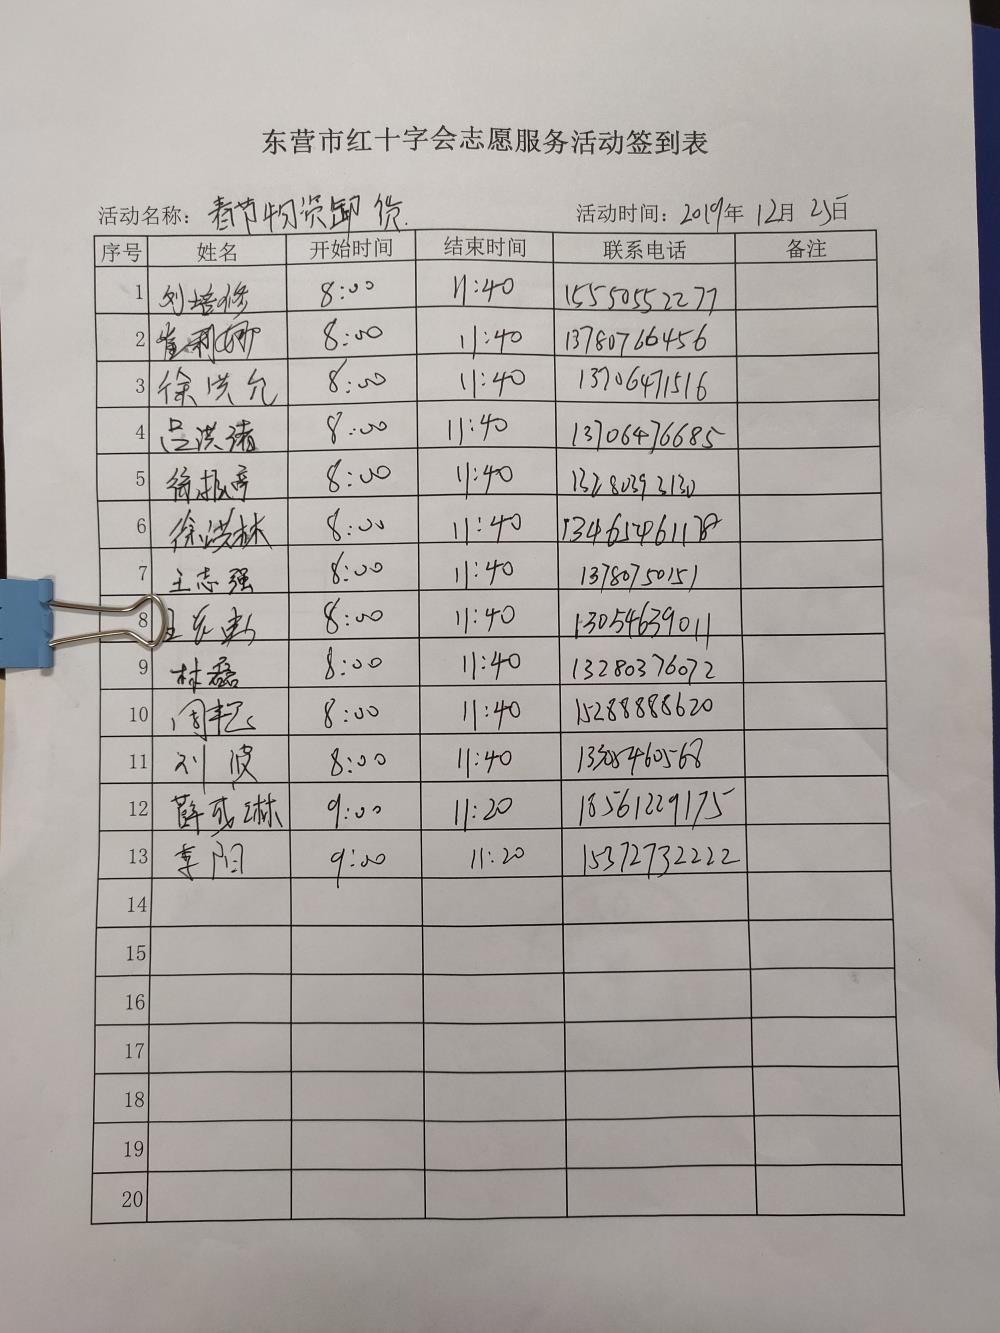 东营市红十字会志愿服务活动签到表
活动名称：春节物资卸货. 活动时间：2019年 12月 25日
序号 姓名 开始时间 结束时间 联系电话 备注
1 刘培修 8:00 11:40 15550552277
2 崔利娜 8:00 11:40 13780766456
3 徐洪允 8:00 11:40 13706471516
4 吕洪绪 8:00 11:40 13706476685
5 徐振亭 8:00 11:40 13280393130
6 徐洪林 8:00 11:40
7 王志强 8:00 11:40 13780750151
8 8:00 11:40 13054639011
9 林磊 8:00 11:40 13280376072
10 周艳 8:00 11:40 15288888620
11 刘波 8:00 11:40
12 薛成琳 9:00 11:20 18561229175
13 李阳 9:00 11:20 15372732222
14
15
16
17
18
19
20